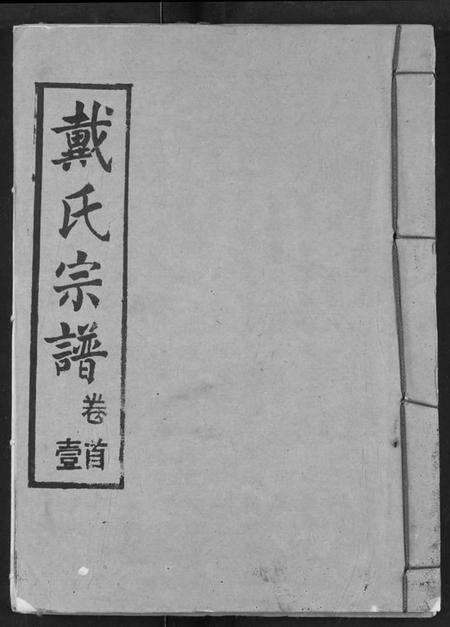 戴氏宗譜
卷首
壹